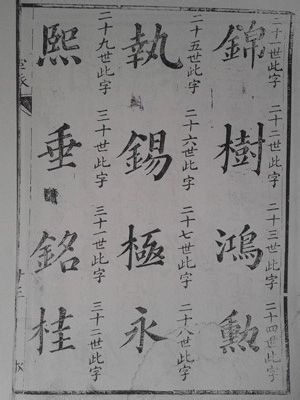 錦 二十一世此字
樹 二十二世此字
鴻 二十三世此字
勳 二十四世此字
執 二十五世此字
錫 二十六世此字
極 二十七世此字
永 二十八世此字
熙 二十九世此字
垂 三十世此字
銘 三十一世此字
桂 三十二世此字